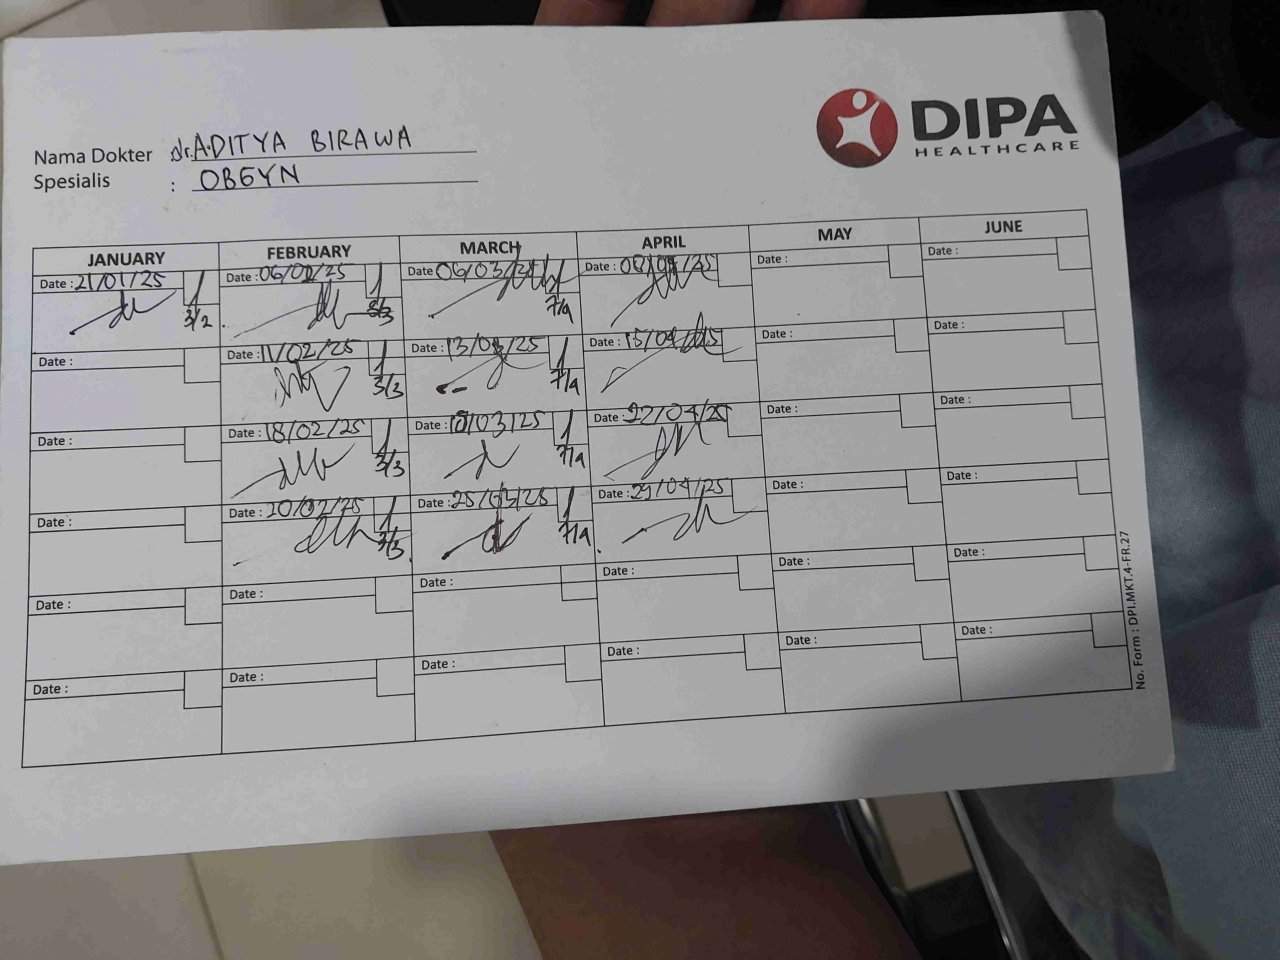 DIPA
HEALTHCARE
Nama Dokter dr. ADITYA BIRAWA
Spesialis : OBGYN
JANUARY FEBRUARY MARCH APRIL MAY JUNE
Date : 21/01/25 1 Date : 06/02/25 1 Date 06/03/25 Date : 08/04/25 Date : Date :
3/2 3/3 7/4
Date : Date : 11/02/25 1 Date : 13/03/25 1 Date : 15/04/25 Date : Date :
3/3 7/4
Date : Date : 18/02/25 1 Date : 18/03/25 1 Date : 22/04/25 Date : Date :
3/3 7/4
Date : Date : 20/02/25 1 Date : 25/03/25 1 Date : 29/04/25 Date : Date :
3/3 7/4
Date : Date : Date : Date : Date : Date :
Date : Date : Date : Date : Date : Date :
No. Form : DPI.MKT.4-FR.27